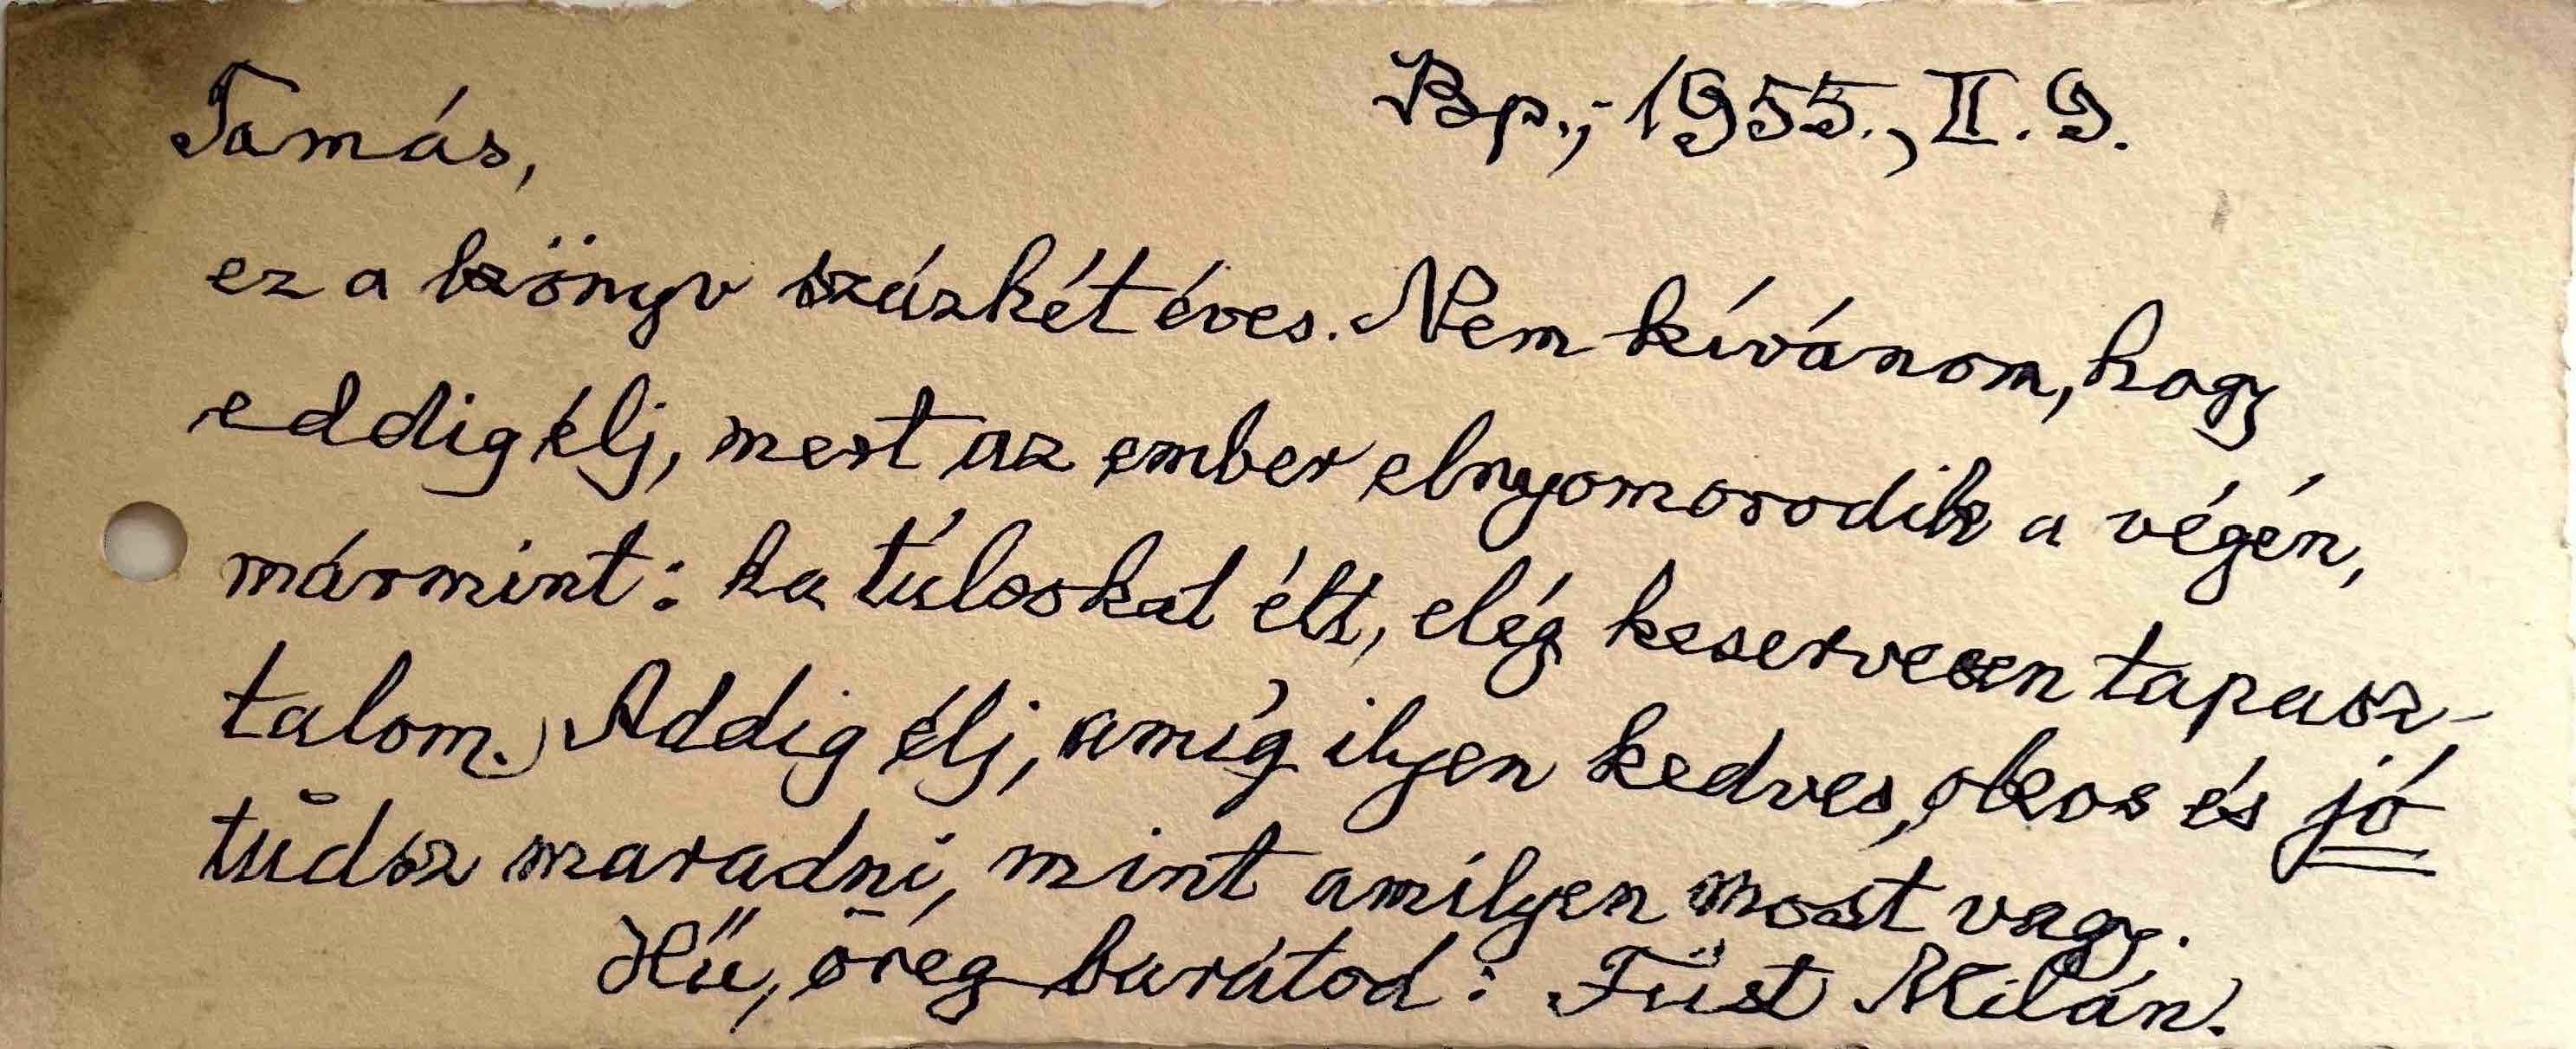 Bp., 1955., II. 9.
Tamás,
ez a könyv százkét éves. Nem kívánom, hogy
eddig élj, mert az ember elnyomorodik a végén,
mármint: ha túlsokat élt, elég keservesen tapasz-
talom.) Addig élj, amíg ilyen kedves, okos és jó
tudsz maradni, mint amilyen most vagy.
Hű, öreg barátod: Füst Milán.